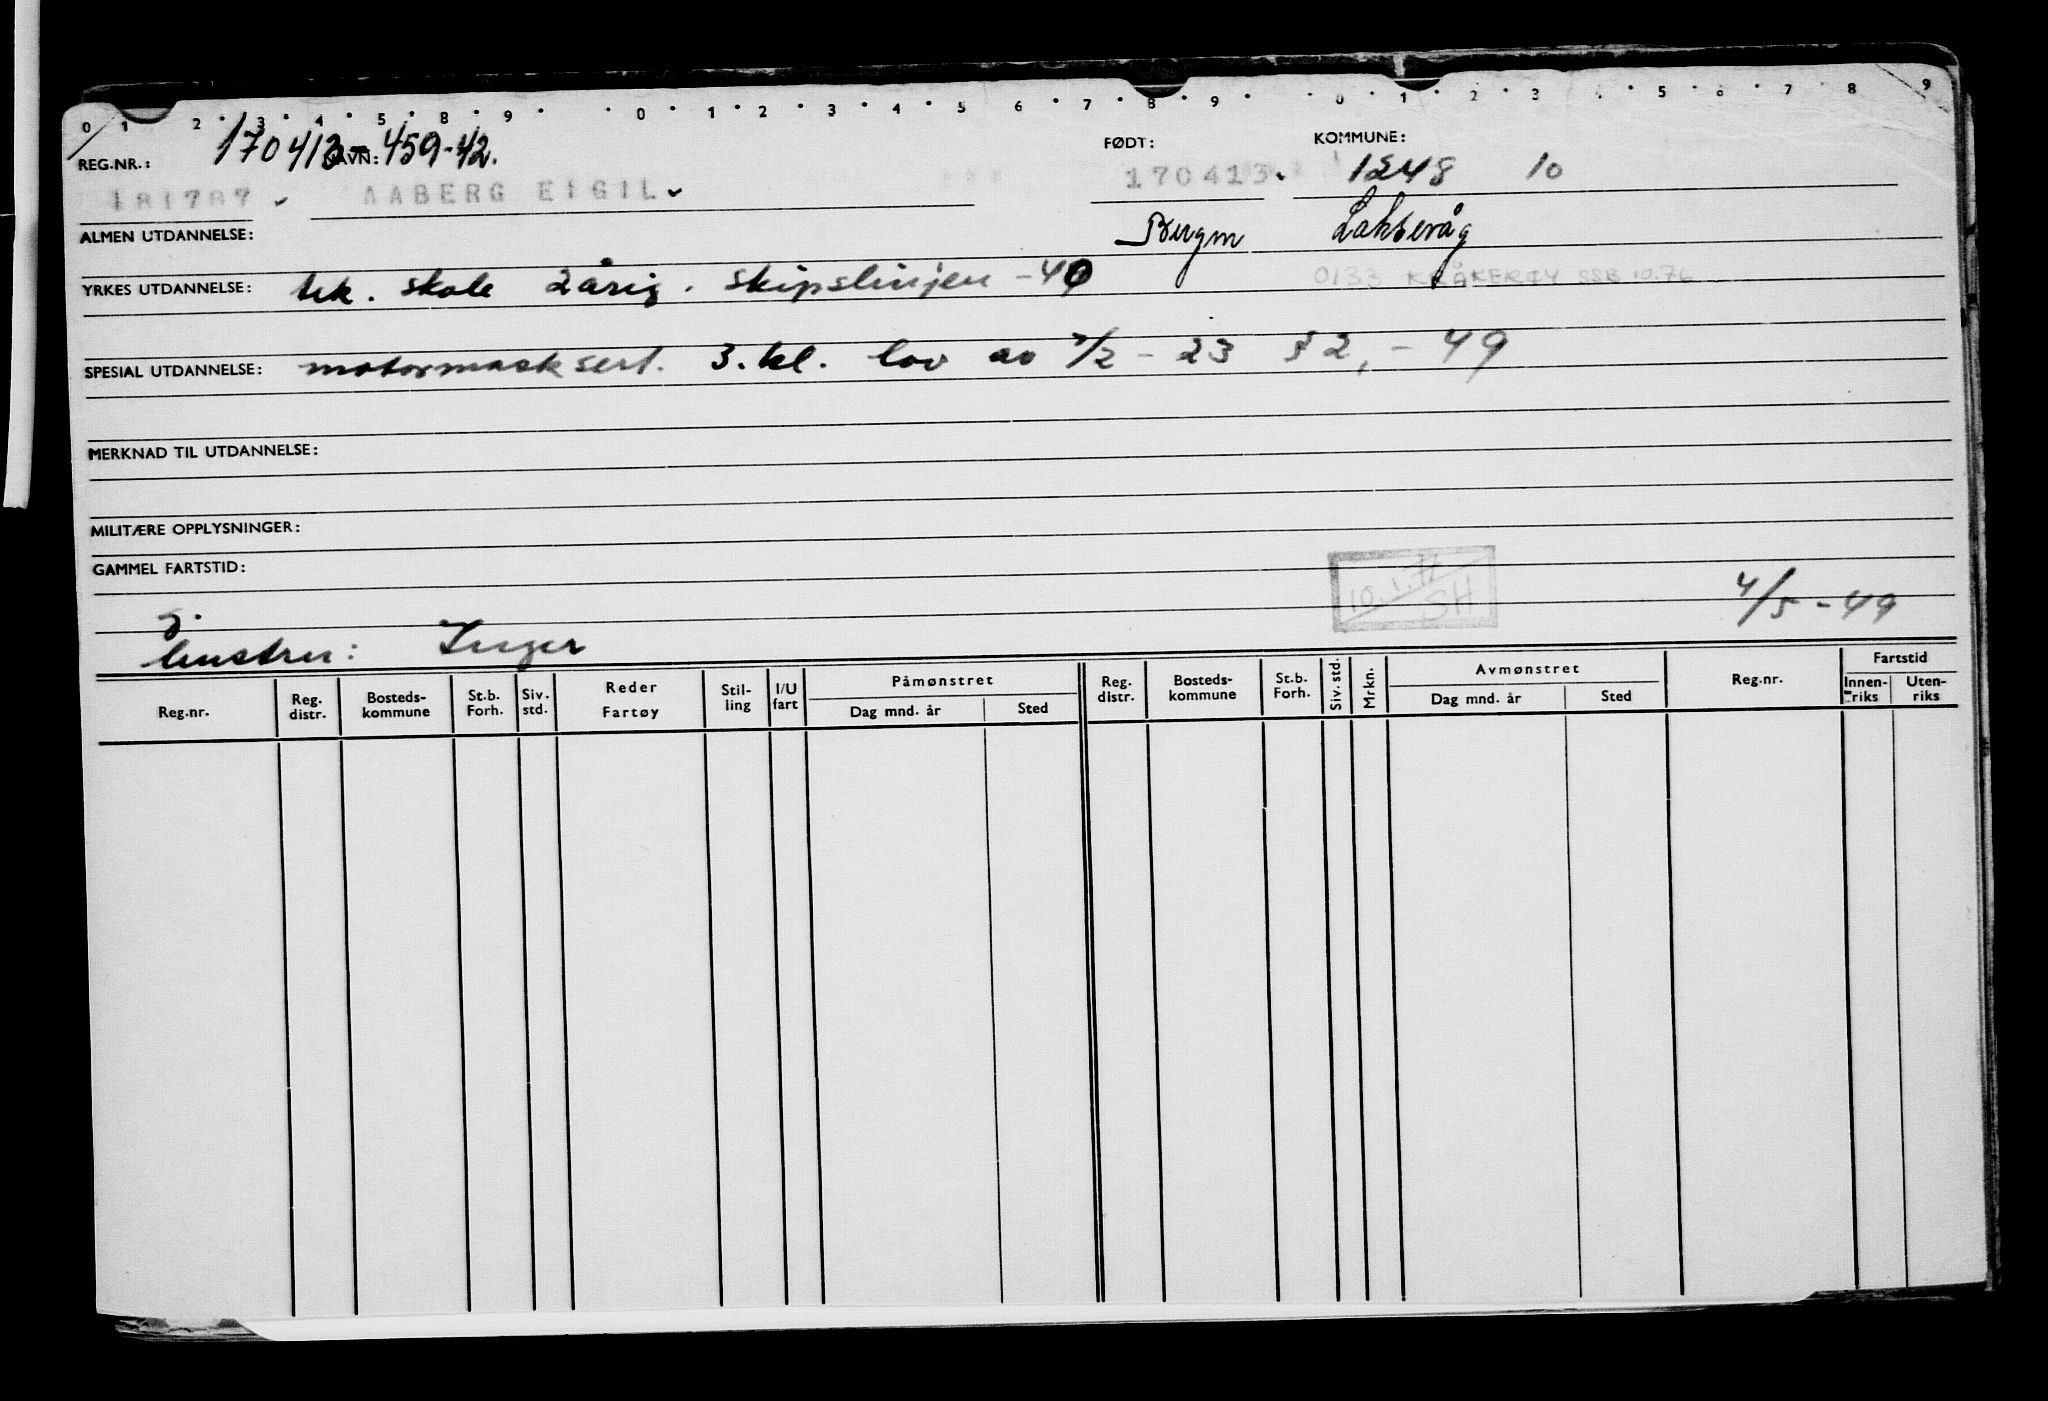 0 1 2 3 4 5 8 9 0 1 2 3 4 5 6 7 8 9 0 1 2 3 4 5 6 7 8 9
170413-459-42.
REG.NR.: NAVN: FØDT: KOMMUNE:
181787 AABERG EIGIL 170413. 1248 10
ALMEN UTDANNELSE: Bergen Laksevåg
YRKES UTDANNELSE: tek. skole 2 årig. skipslinjen -40 0133 KRÅKERØY SSB 10.76
SPESIAL UTDANNELSE: motormask sert. 3. kl. lov av 7/2 - 23 § 2, - 49
MERKNAD TIL UTDANNELSE:
MILITÆRE OPPLYSNINGER:
GAMMEL FARTSTID:
10.1.71 SH
4/5 - 49
g.
hustru: Inger
Reg.nr. Reg. distr. Bosteds-kommune St.b. Forh. Siv. std. Reder Fartøy Stil-ling I/U fart Påmønstret Dag mnd. år Sted Reg. distr. Bosteds-kommune St.b. Forh. Siv. std. Mrkn. Avmønstret Dag mnd. år Sted Reg.nr. Fartstid Innen-riks Uten-riks